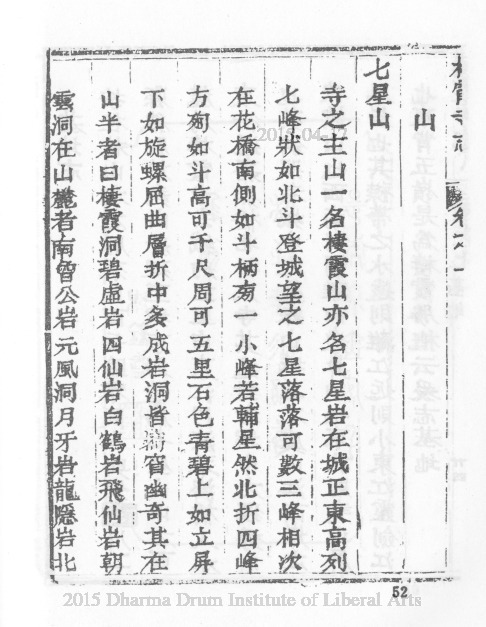 棲霞寺志 卷之一
山
七星山
寺之主山一名棲霞山亦名七星岩在城正東高列
七峰狀如北斗登城望之七星落落可數三峰相次
在花橋南側如斗柄旁一小峰若輔星然北折四峰
方殉如斗高可千尺周可五里石色青碧上如立屏
下如旋螺屈曲層折中多成岩洞皆窈窅幽奇其在
山半者曰棲霞洞碧虛岩四仙岩白鶴岩飛仙岩朝
雲洞在山麓者南曾公岩元風洞月牙岩龍隱岩北
52
2015-04-22
2015 Dharma Drum Institute of Liberal Arts